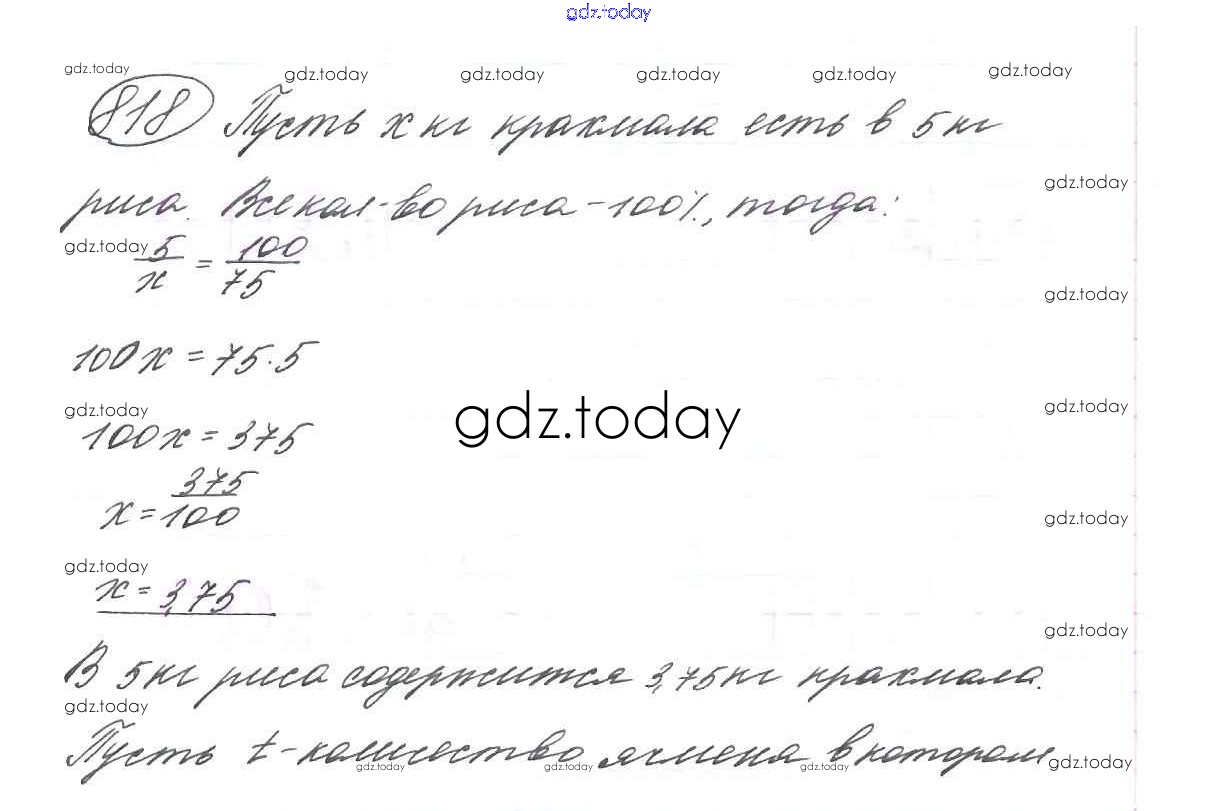 gdz.today
gdz.today gdz.today gdz.today gdz.today gdz.today gdz.today
818 Пусть x кг крахмала есть в 5 кг
gdz.today
риса. Все кол-во риса - 100%, тогда:
gdz.today
5/x = 100/75
gdz.today
100x = 75·5
gdz.today gdz.today gdz.today
100x = 375
x = 375/100
gdz.today
gdz.today
x = 3,75
gdz.today
В 5 кг риса содержится 3,75 кг крахмала.
gdz.today
Пусть t - количество ячменя в котором
gdz.today gdz.today gdz.today gdz.today